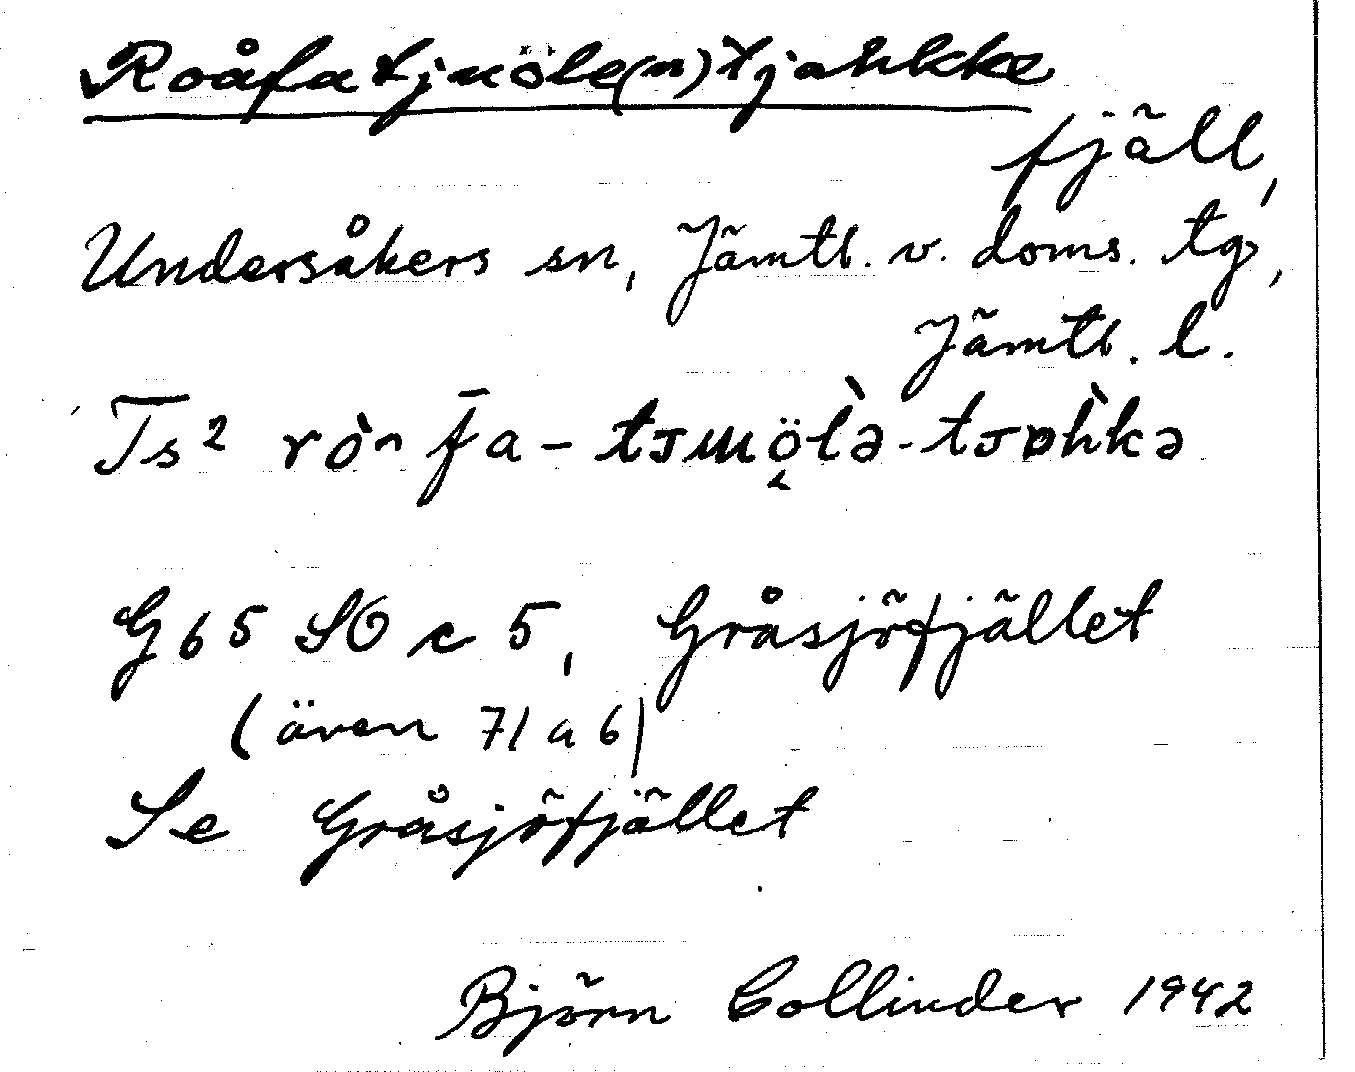 Roåfatjuöle(n)tjahkke
fjäll,
Undersåkers sn, Jämtl. v. doms. tg,
Jämtl. l.
Ts²
G 65 SO c 5, Gråsjöfjället
(även 71 a 6)
Se Gråsjöfjället
Björn Collinder 1942